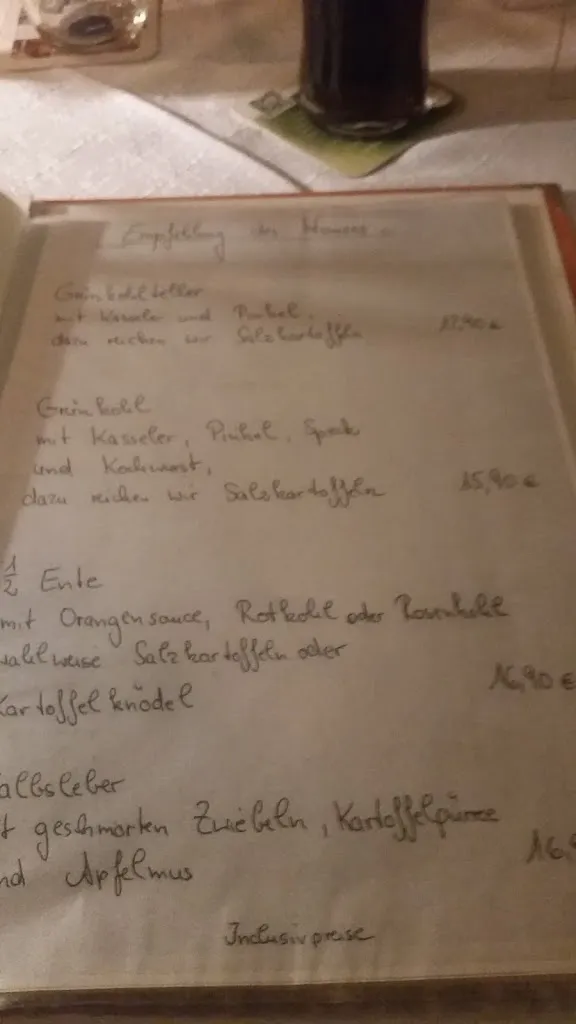 Empfehlung des Hauses
Grünkohlteller
mit Kasseler und Pinkel,
dazu reichen wir Salzkartoffeln
Grünkohl
mit Kasseler, Pinkel, Speck
und Kochwurst,
dazu reichen wir Salzkartoffeln 15,90 €
1/2 Ente
mit Orangensauce, Rotkohl oder Rosenkohl
wahlweise Salzkartoffeln oder
Kartoffelknödel 16,90 €
albsleber
t geschmorten Zwiebeln, Kartoffelpüree
nd Apfelmus 16,9
Inclusivpreise